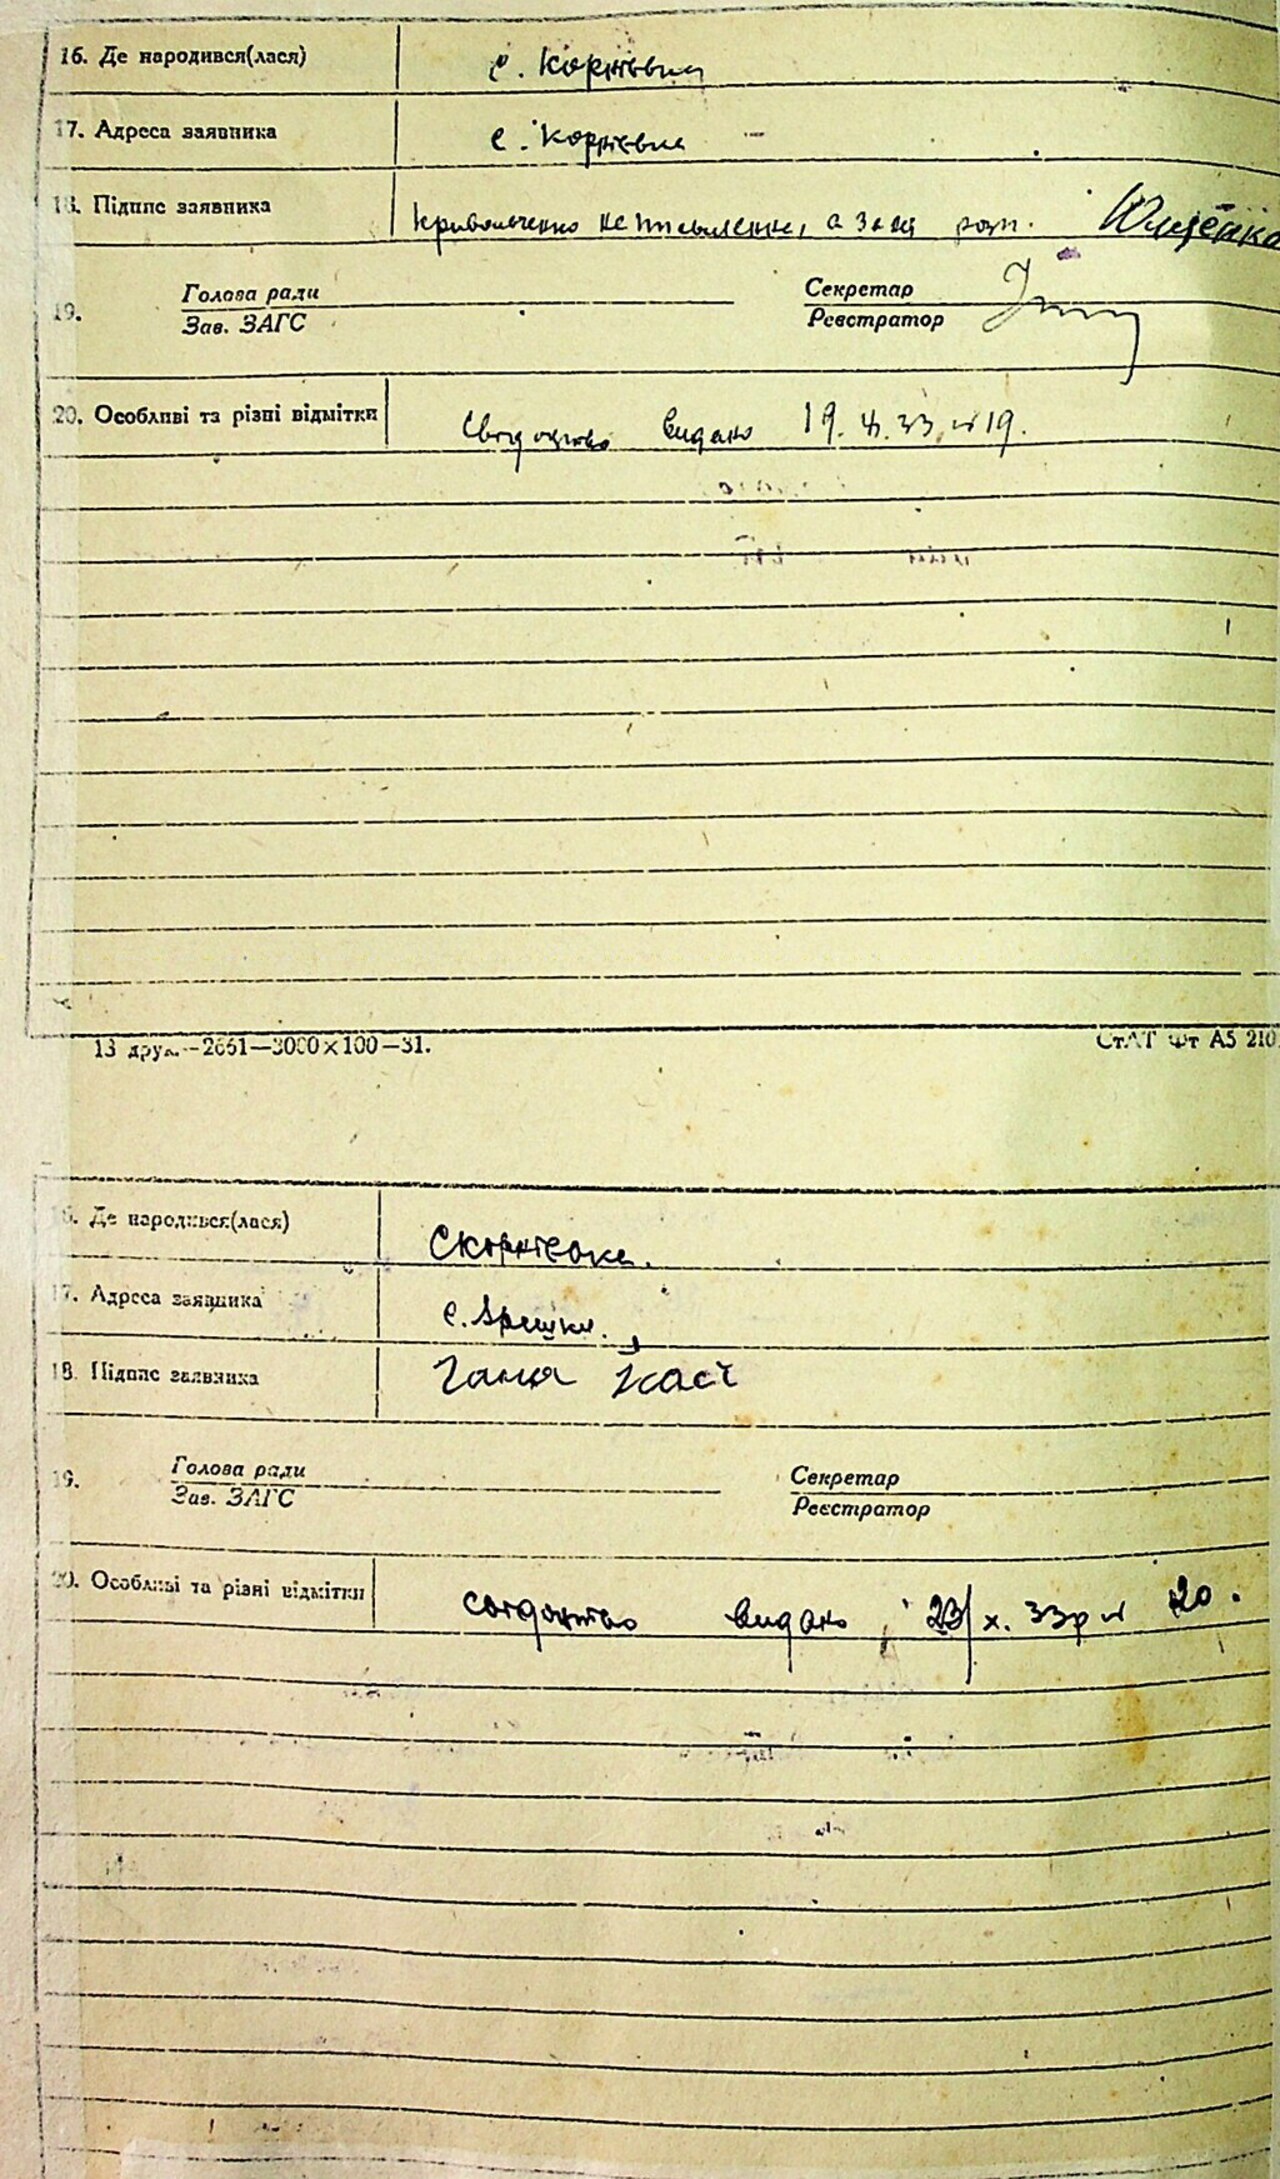 16. Де народився(лася) с. Корнієвка
17. Адреса заявника с. Корнієвка
18. Підпис заявника неписьменне, а з неї розп. Ющенко
Голова ради Секретар
19. Зав. ЗАГС Реєстратор
20. Особливі та різні відмітки свідоцтво видано 19. 33. № 19.
13 друк.—2651—3000×100—31. СтАТ Фт А5 210
16. Де народився(лася) С Корнієвка.
17. Адреса заявника
18. Підпис заявника
Голова ради Секретар
19. Зав. ЗАГС Реєстратор
20. Особливі та різні відмітки свідоцтво видано 23/х. 33р № 20.